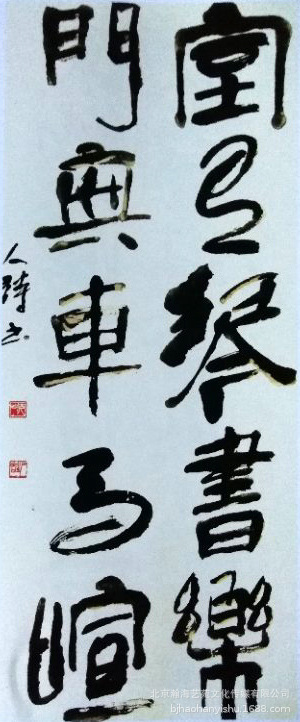 室有琴書樂
門無車馬喧
人
书
北京瀚海艺苑文化传媒有限公司
bjhaohanyishu.1688.com